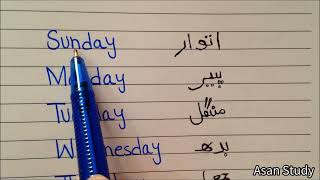 Sunday اتوار
Monday پیر
Tuesday منگل
Wednesday بدھ
Asan Study